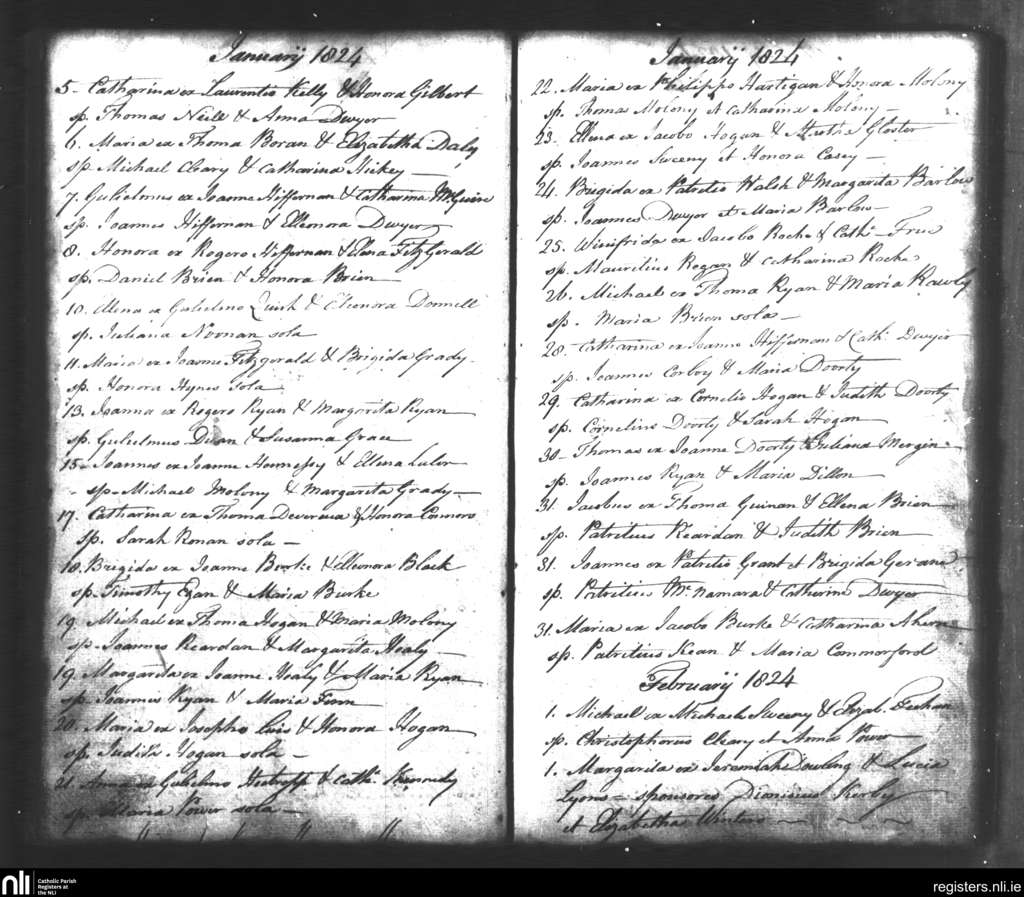 Januarij 1824
5- Catharina ex Laurentio Kelly & Honora Gilbert
sp. Thomas Neill & Anna Dwyer
6. Maria ex Thoma Boran & Elizabetha Daly
sp. Michael Cleary & Catharina Hickey —
7. Gulielmus ex Joanne Hiffernan & Catharina McGuire
sp. Joannes Hiffernan & Elleonora Dwyer
8. Honora ex Rogero Hiffernan & Elena FitzGerald
sp. Daniel Brien & Honora Brien
10. Ellena ex Gulielmo Quirk & Eleonora Donnell
sp. Juliana Noonan sola
11. Maria ex Joanne Fitzgerald & Brigida Grady
sp. Honora Hynes sola
13. Joanna ex Rogero Ryan & Margarita Ryan
sp. Gulielmus & Susanna Grace
15- Joannes ex Joanne Hennessy & Ellena Lalor
sp. Michael Molony & Margarita Grady —
17. Catharina ex Thoma Devereux & Honora Connors
sp. Sarah Ronan sola —
18. Brigida ex Joanne Burke & Elleonora Black
sp. Timothy Egan & Maria Burke
19. Michael ex Thoma Hogan & Maria Molony
sp. Joannes Reardan & Margarita Healy —
19. Margarita ex Joanne Healy & Maria Ryan
sp. Joannes Ryan & Maria Finn
20. Maria ex Josepho & Honora Hogan
sp. Judith Hogan sola —
21. Anna ex Gulielmo & Cath: Kennedy
sp. Maria Power sola —
Januarij 1824
22. Maria ex Philippo Hartigan & Honora Molony
sp. Thomas Molony et Catharina Molony —
23. Ellena ex Jacobo Hogan & Gloster
sp. Joannes Sweeny et Honora Casey —
24. Brigida ex Patritio Walsh & Margarita Barlow
sp. Joannes Dwyer et Maria Barlow
25. Winifrida ex Jacobo Roche & Cath: Free
sp. Mauritius Regan & Catharina Roche
26. Michael ex Thoma Ryan & Maria Rawly
sp. Maria Brien sola —
28. Catharina ex Joanne Hiffernan & Cath: Dwyer
sp. Joannes Corboy & Maria Doorty
29. Catharina ex Cornelio Hogan & Judith Doorty
sp. Cornelius Doorty & Sarah Hogan
30- Thomas ex Joanne Doorty & Juliana Mergin
sp. Joannes Ryan & Maria Dillon
31. Jacobus ex Thoma Guinan & Ellena Brien
sp. Patritius Reardan & Judith Brien
31. Joannes ex Patritio Grant et Brigida
sp. Patritius McNamara & Catherine Dwyer
31. Maria ex Jacobo Burke & Catharina Ahern
sp. Patritius Kean & Maria Commorford
Februarij 1824
1. Michael ex Michaele Sweeny & Elizab. Feehan
sp. Christophorus Cleary et Anna Power
1. Margarita ex Jeremiah Dowling & Lucia
Lyons — sponsores Dionisius Kerby
et Elizabetha Winters
nli
Catholic Parish
Registers at
the NLI
registers.nli.ie